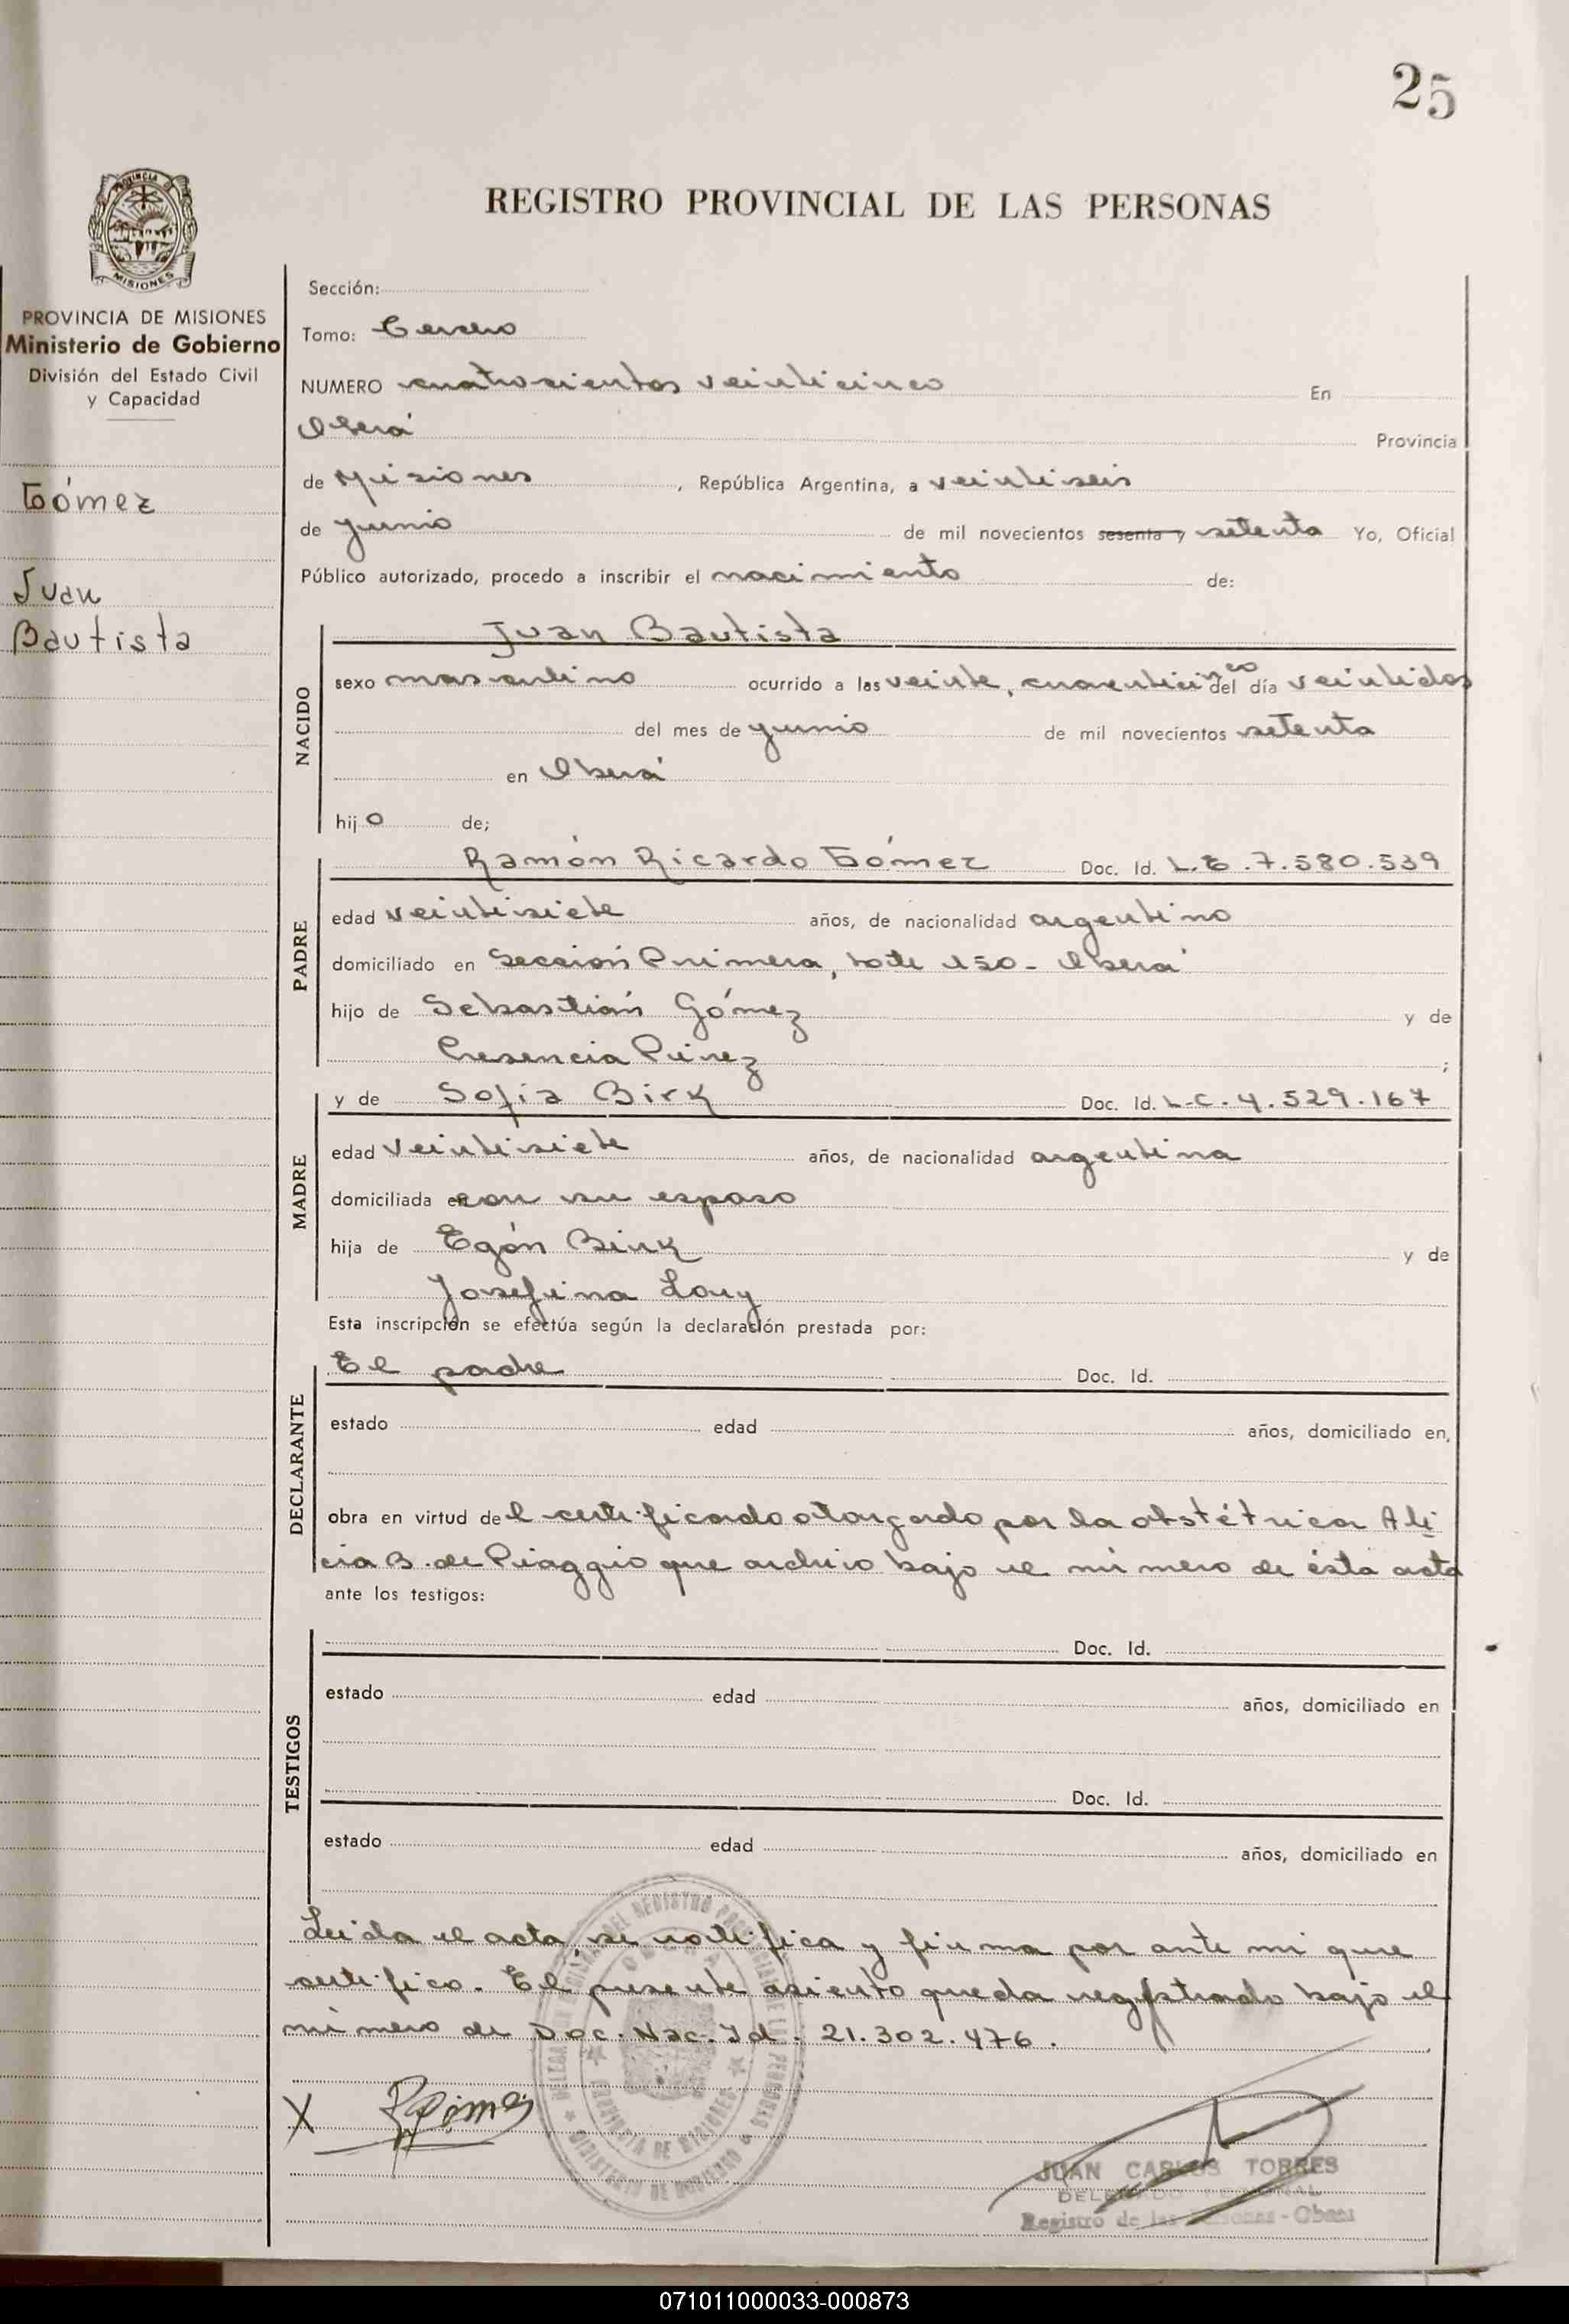 25
PROVINCIA
MISIONES
PROVINCIA DE MISIONES
Ministerio de Gobierno
División del Estado Civil
y Capacidad
Gómez
Juan
Bautista
REGISTRO PROVINCIAL DE LAS PERSONAS
Sección:
Tomo: Tercero
NUMERO cuatrocientos veinticinco En
Oberá Provincia
de Misiones, República Argentina, a veintiseis
de junio de mil novecientos sesenta y setenta Yo, Oficial
Público autorizado, procedo a inscribir el nacimiento de:
NACIDO
Juan Bautista
sexo masculino ocurrido a las veinte, cuarenticinco del día veintidos
del mes de junio de mil novecientos setenta
en Oberá
hijo de;
PADRE
Ramón Ricardo Gómez Doc. Id. L.E.7.580.539
edad veintisiete años, de nacionalidad argentino
domiciliado en Sección Primera, lote 150- Oberá
hijo de Sebastián Gómez y de
Presencia ;
MADRE
y de Sofía Birk Doc. Id. L-C-4.529.167
edad veintisiete años, de nacionalidad argentina
domiciliada en con su esposo
hija de Egón Birk y de
Josefina
Esta inscripción se efectúa según la declaración prestada por:
DECLARANTE
El padre Doc. Id.
estado edad años, domiciliado en,
obra en virtud del certificado otorgado por la obstétrica Ali
cia B. de Piaggio que archivo bajo el número de ésta acta
ante los testigos:
TESTIGOS
Doc. Id.
estado edad años, domiciliado en
Doc. Id.
estado edad años, domiciliado en
Leida el acta, se notifica y firma por ante mi que
certifico. El presente asiento queda registrado bajo el
número de Doc. Nac. Id. 21.302.476.
X RGómez
JUAN CARLOS TORRES
Registro de las Personas - Oberá
071011000033-000873